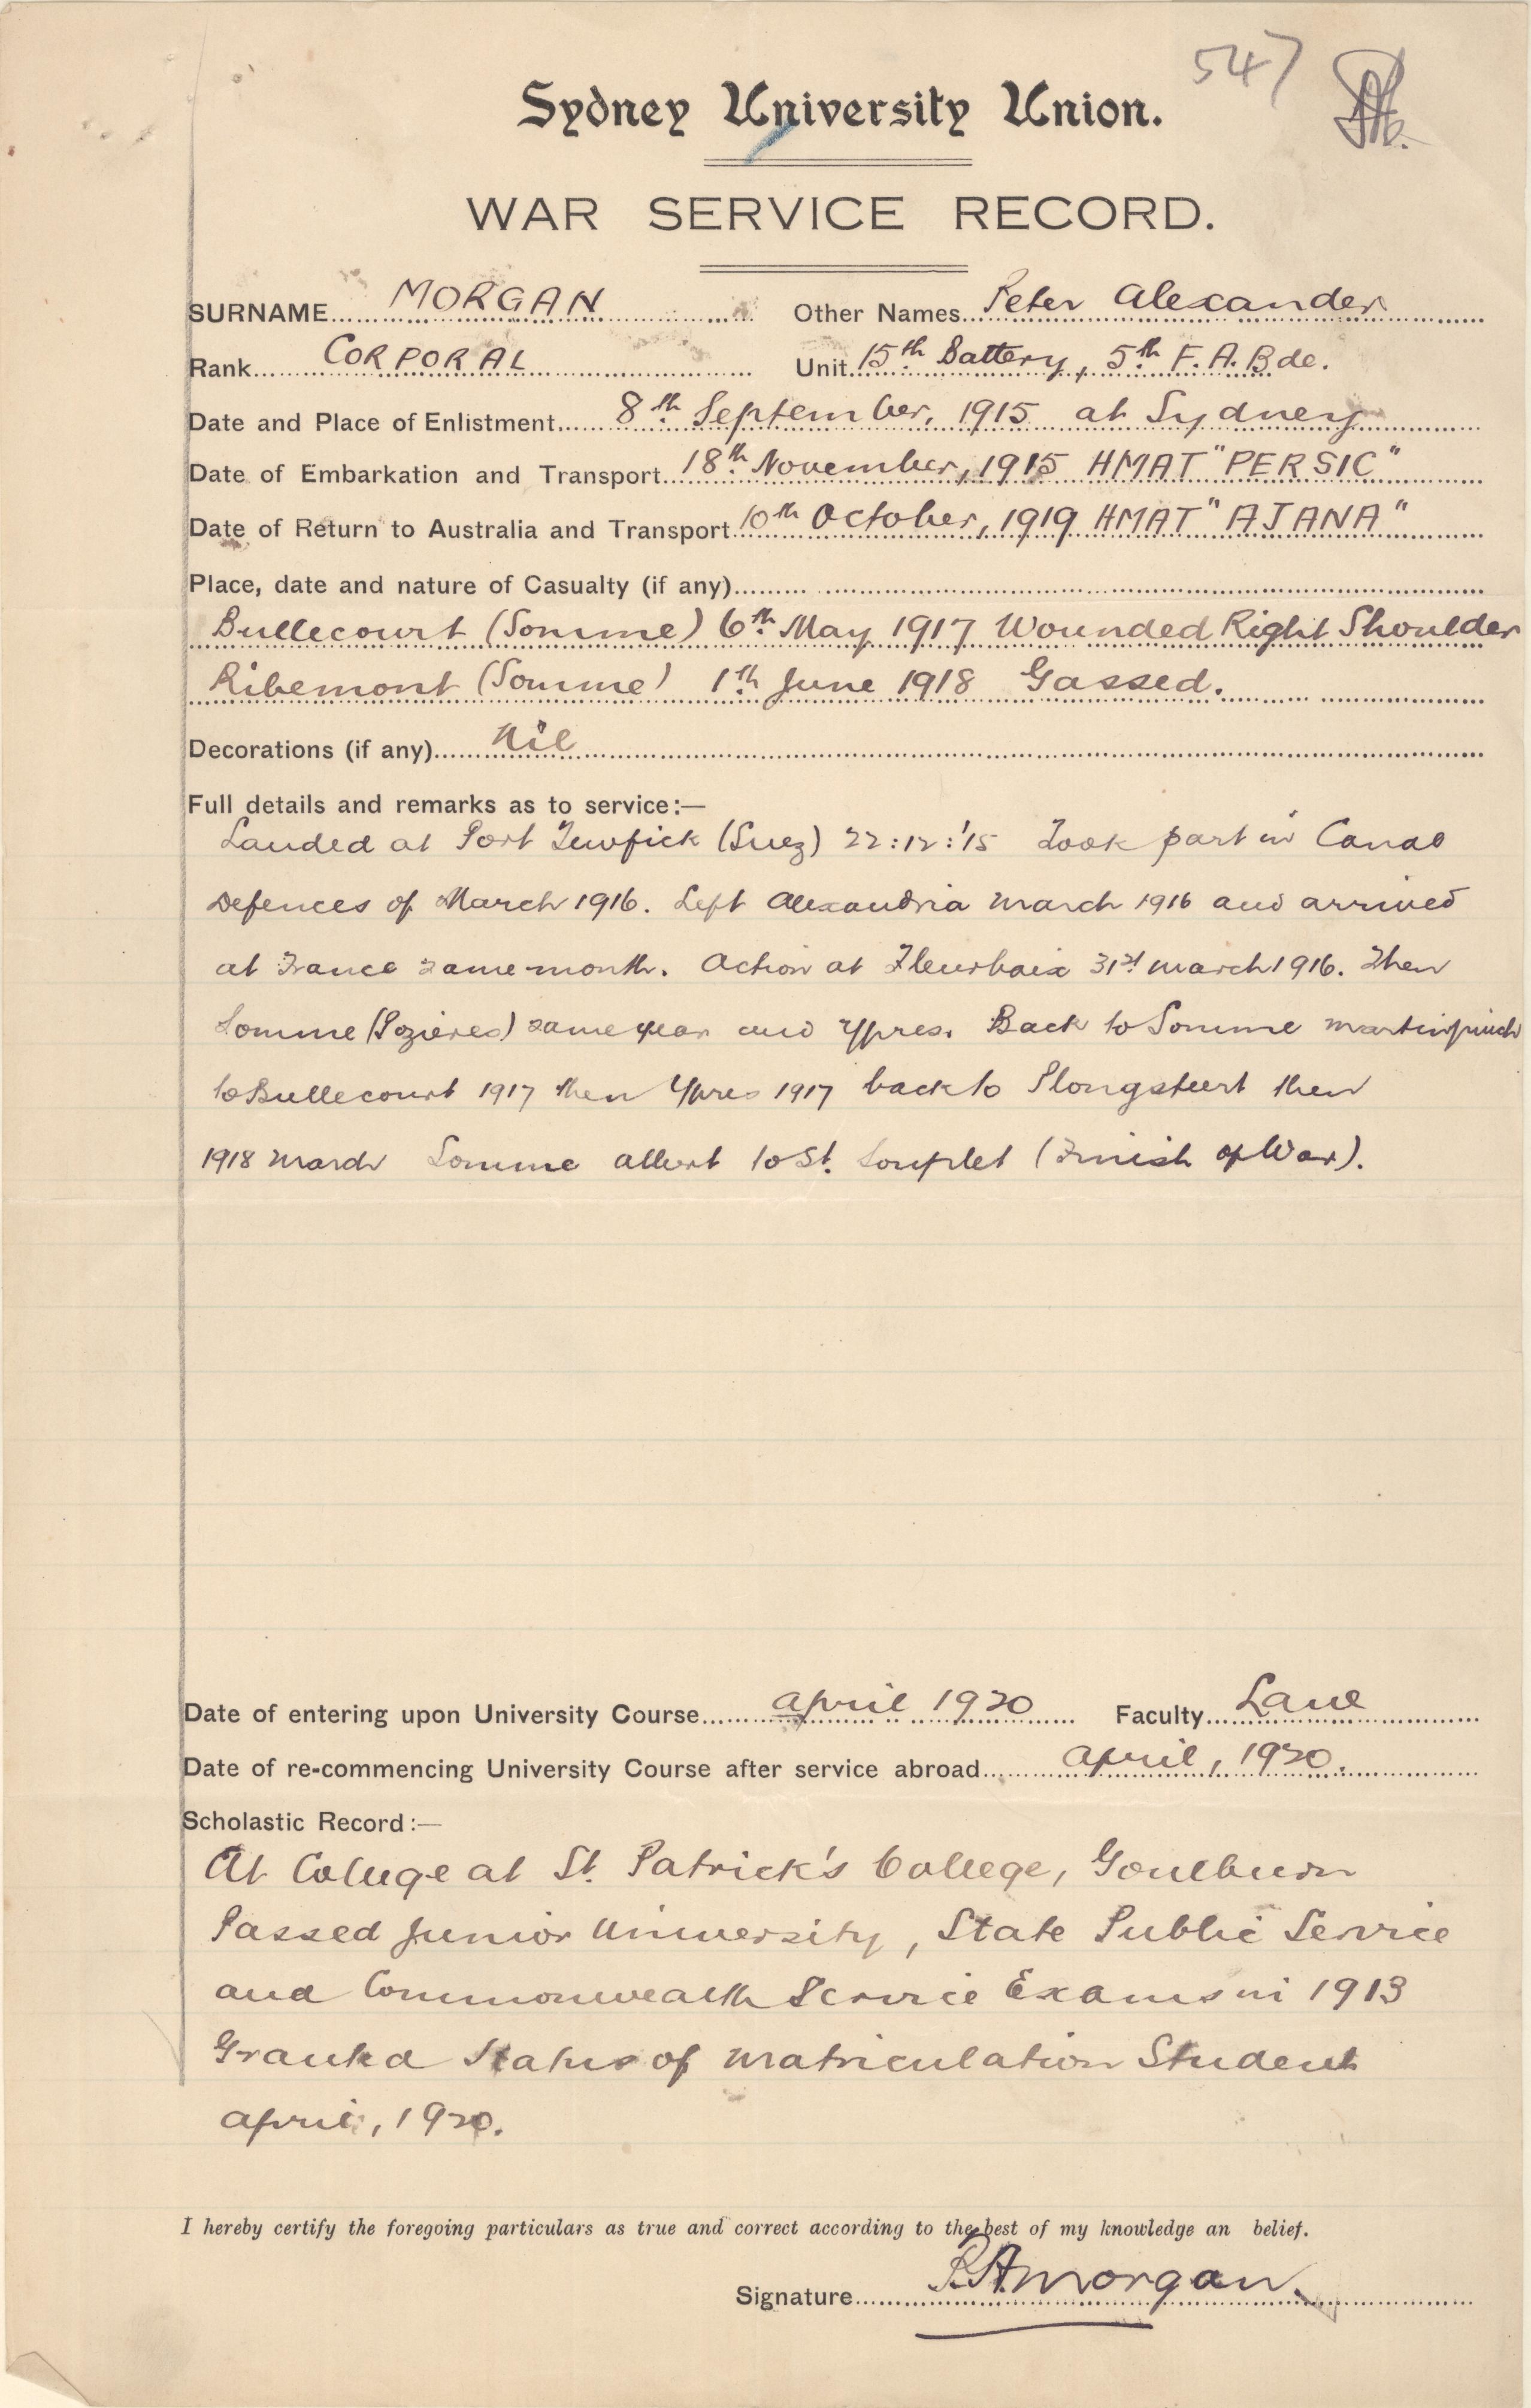 547
Sydney University Union.
WAR SERVICE RECORD.
SURNAME MORGAN Other Names Peter Alexander
Rank CORPORAL Unit 15th Battery, 5th F.A.Bde.
Date and Place of Enlistment 8th September, 1915 at Sydney
Date of Embarkation and Transport 18th November, 1915 HMAT "PERSIC"
Date of Return to Australia and Transport 10th October, 1919 HMAT "AJANA"
Place, date and nature of Casualty (if any)
Bullecourt (Somme) 6th May 1917 Wounded Right Shoulder
Ribemont (Somme) 1th June 1918 Gassed.
Decorations (if any) Nil
Full details and remarks as to service:—
Landed at Port Tewfick (Suez) 22:12:'15 Took part in Canal
Defences of March 1916. Left Alexandria March 1916 and arrived
at France same month. Action at Fleurbaix 31st March 1916. Then
Somme (Pozieres) same year and Ypres. Back to Somme Martinpuich
to Bullecourt 1917 then Ypres 1917 back to Plongsteert then
1918 March Somme Albert to St. Souplet (Finish of War).
Date of entering upon University Course April 1920 Faculty Law
Date of re-commencing University Course after service abroad April, 1920.
Scholastic Record:—
At College at St. Patrick's College, Goulburn
Passed Junior University, State Public Service
and Commonwealth Service Exams in 1913
Granted Status of Matriculation Student
April, 1920.
I hereby certify the foregoing particulars as true and correct according to the best of my knowledge an belief.
Signature P.A. Morgan.